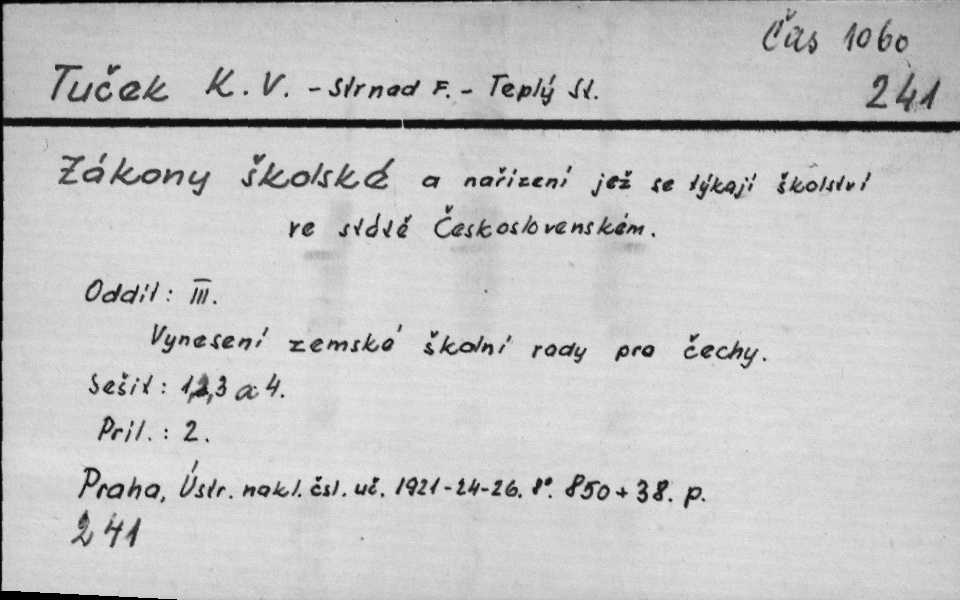 Čas 1060
Tuček K. V. - Strnad F. - Teplý St.
241
Zákony školské a nařízení jež se týkají školství
ve státě Československém.
Oddíl: III.
Vynesení zemské školní rady pro čechy.
Sešit: 1,2,3 a 4.
Příl.: 2.
Praha, Ústr. nakl. čsl. uč. 1921-24-26. 8°. 850+38. p.
241